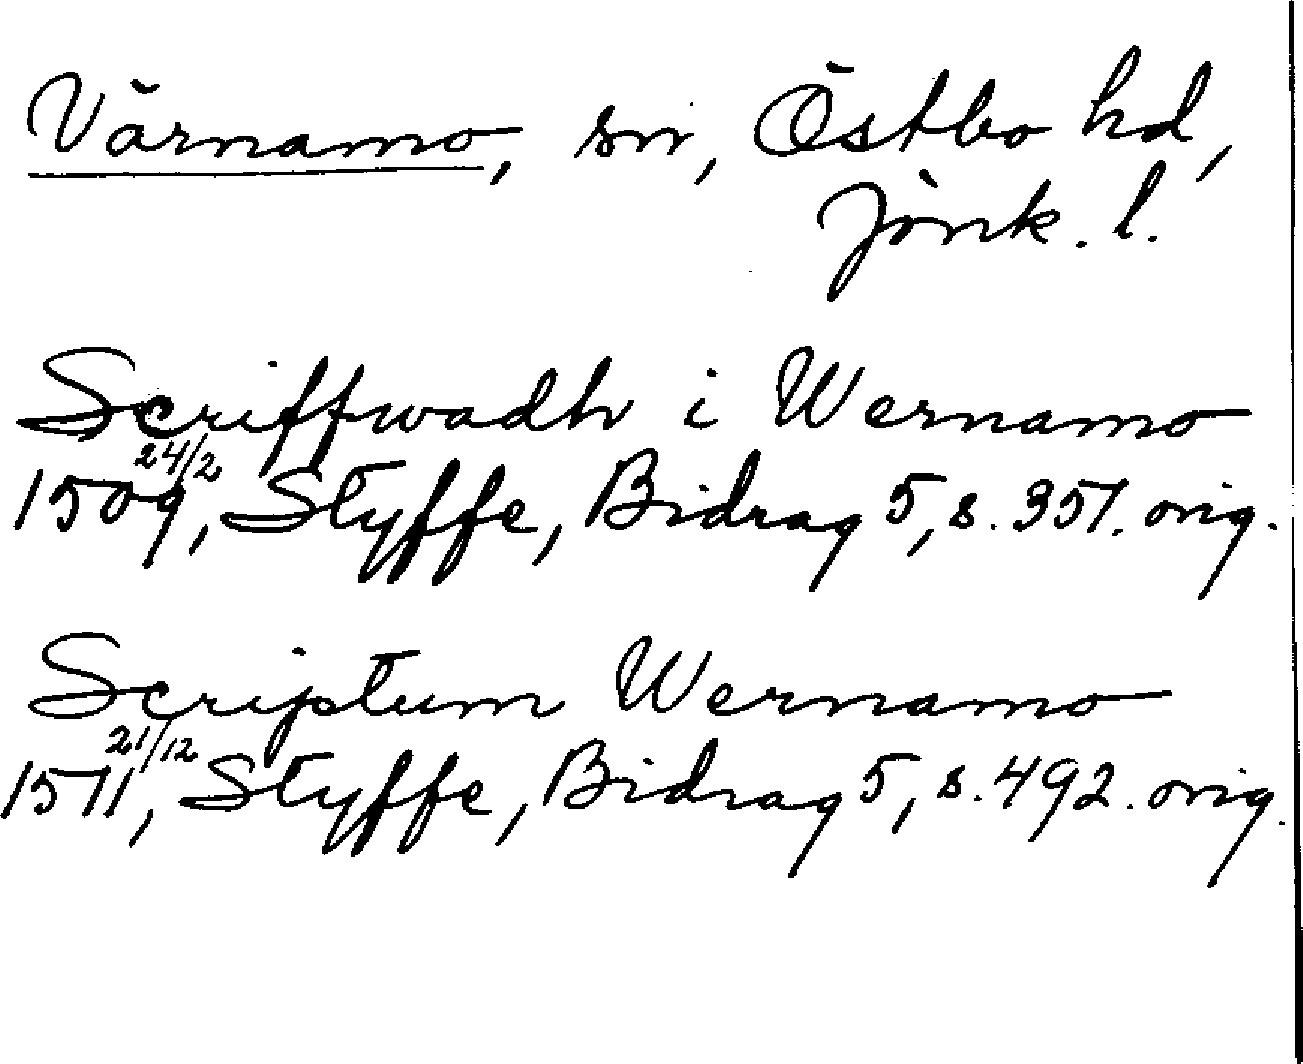 Värnamo, sn, Östbo hd,
Jönk. l.
Scriffwadh i Wernamo
24/2
1509, Styffe, Bidrag 5, s. 351. orig.
Scriptum Wernamo
21/12
1511, Styffe, Bidrag 5, s. 492. orig.